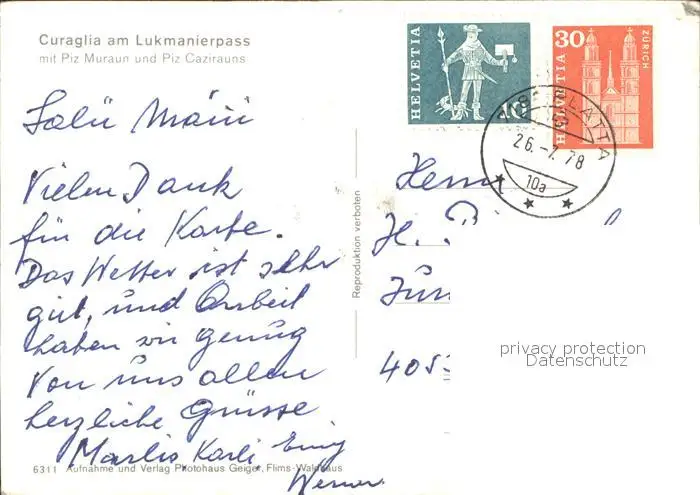 Curaglia am Lukmanierpass
mit Piz Muraun und Piz Cazirauns
HELVETIA
10
HELVETIA
30
ZÜRICH
26.-7.78
10a
Salü Mäni
Vielen Dank
für die Karte.
Das Wetter ist sehr
gut, und Arbeit
haben wir genug
Von uns allen
herzliche Grüsse
Marlis Karli
Werner
Reproduktion verboten
Herrn
H.
405
privacy protection
Datenschutz
6311 Aufnahme und Verlag Photohaus Geiger, Flims-Waldhaus